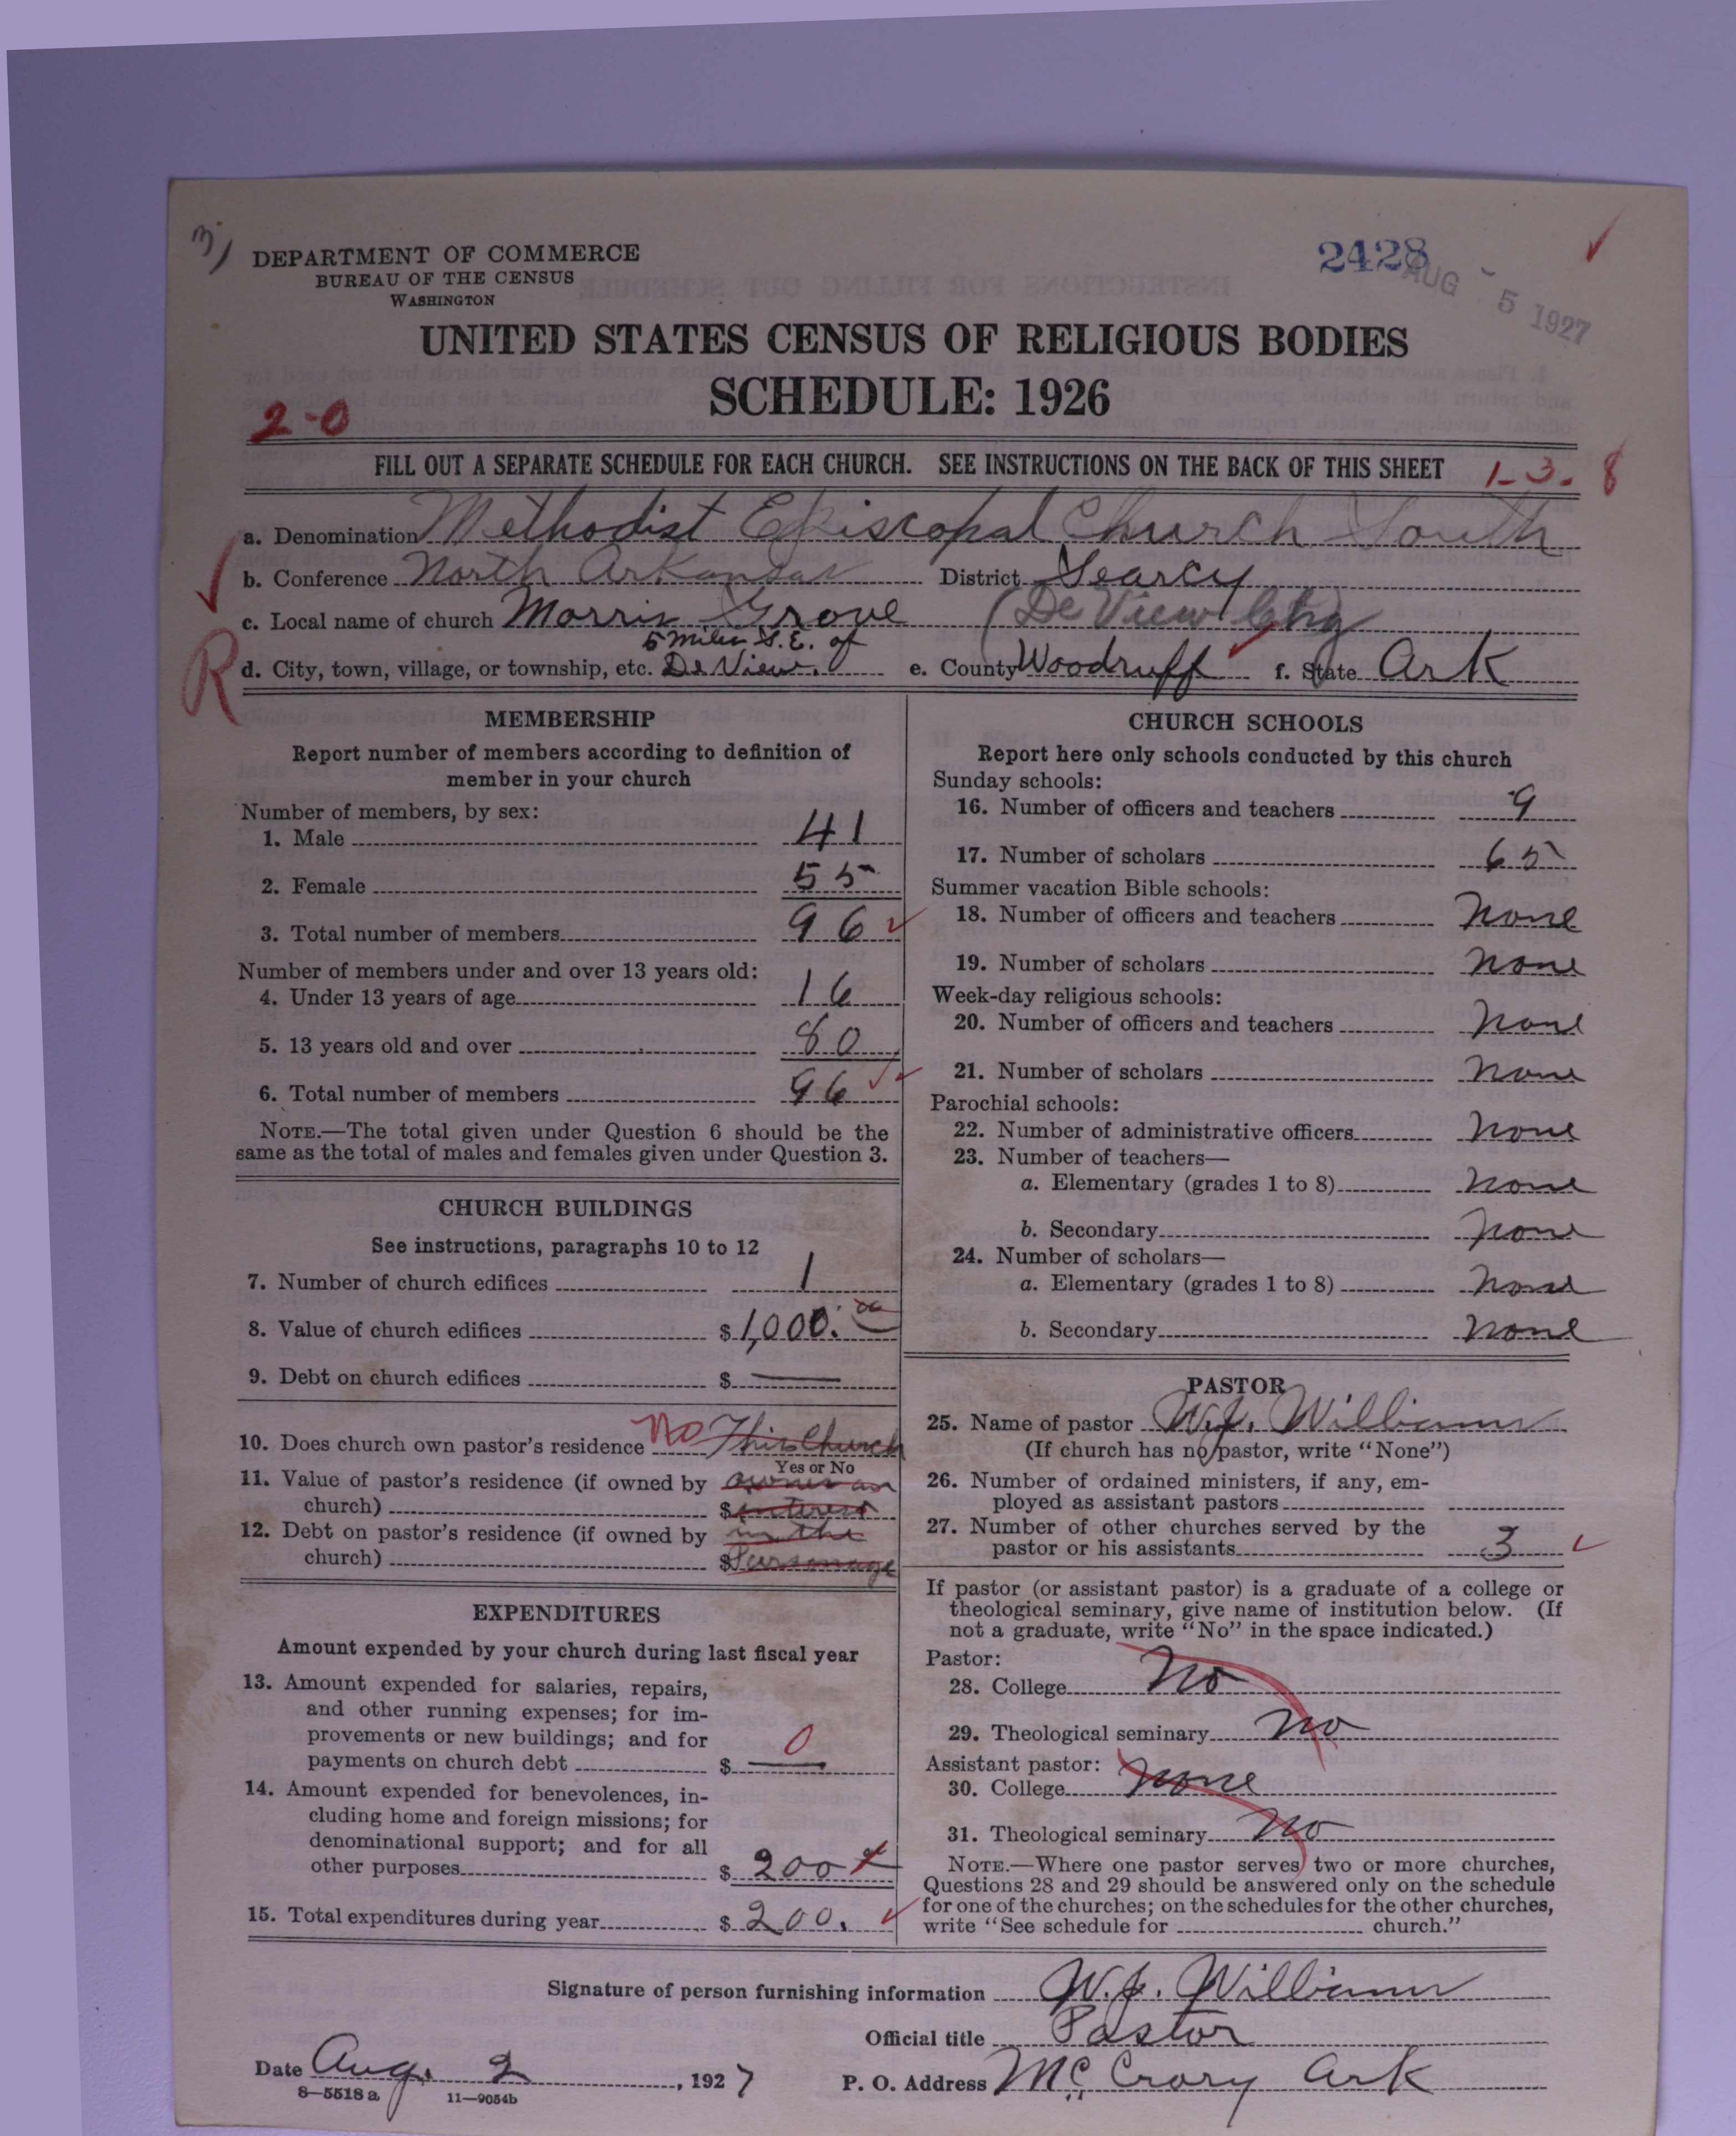 DEPARTMENT OF COMMERCE
BUREAU OF THE CENSUS
WASHINGTON
2428
AUG 5 1927
UNITED STATES CENSUS OF RELIGIOUS BODIES
SCHEDULE: 1926
2-0
FILL OUT A SEPARATE SCHEDULE FOR EACH CHURCH. SEE INSTRUCTIONS ON THE BACK OF THIS SHEET
1-3.8
a. Denomination Methodist Episcopal Church South
b. Conference North Arkansas District Searcy
c. Local name of church Morris Grove (De View Chg
5 miles S.E. of
d. City, town, village, or township, etc. De View. e. County Woodruff f. State Ark
R
MEMBERSHIP
Report number of members according to definition of
member in your church
Number of members, by sex:
1. Male 41
2. Female 55
3. Total number of members 96
Number of members under and over 13 years old:
4. Under 13 years of age 16
5. 13 years old and over 80
6. Total number of members 96
NOTE.—The total given under Question 6 should be the
same as the total of males and females given under Question 3.
CHURCH BUILDINGS
See instructions, paragraphs 10 to 12
7. Number of church edifices 1
8. Value of church edifices $1,000.00
9. Debt on church edifices $ —
10. Does church own pastor's residence No This Church
Yes or No
11. Value of pastor's residence (if owned by owns an
church) $ interest
12. Debt on pastor's residence (if owned by in the
church) $ Parsonage
EXPENDITURES
Amount expended by your church during last fiscal year
13. Amount expended for salaries, repairs,
and other running expenses; for im-
provements or new buildings; and for
payments on church debt $ — 0
14. Amount expended for benevolences, in-
cluding home and foreign missions; for
denominational support; and for all
other purposes $ 200
15. Total expenditures during year $ 200.
CHURCH SCHOOLS
Report here only schools conducted by this church
Sunday schools:
16. Number of officers and teachers 9
17. Number of scholars 65
Summer vacation Bible schools:
18. Number of officers and teachers none
19. Number of scholars none
Week-day religious schools:
20. Number of officers and teachers none
21. Number of scholars none
Parochial schools:
22. Number of administrative officers none
23. Number of teachers—
a. Elementary (grades 1 to 8) none
b. Secondary none
24. Number of scholars—
a. Elementary (grades 1 to 8) none
b. Secondary none
PASTOR
25. Name of pastor W.J. Williams
(If church has no pastor, write "None")
26. Number of ordained ministers, if any, em-
ployed as assistant pastors
27. Number of other churches served by the
pastor or his assistants 3
If pastor (or assistant pastor) is a graduate of a college or
theological seminary, give name of institution below. (If
not a graduate, write "No" in the space indicated.)
Pastor:
28. College No
29. Theological seminary no
Assistant pastor:
30. College none
31. Theological seminary no
NOTE.—Where one pastor serves two or more churches,
Questions 28 and 29 should be answered only on the schedule
for one of the churches; on the schedules for the other churches,
write "See schedule for church."
Signature of person furnishing information W.J. Williams
Official title Pastor
Date Aug. 2, 1927 P. O. Address McCrory Ark
8-5518 a 11-9054b